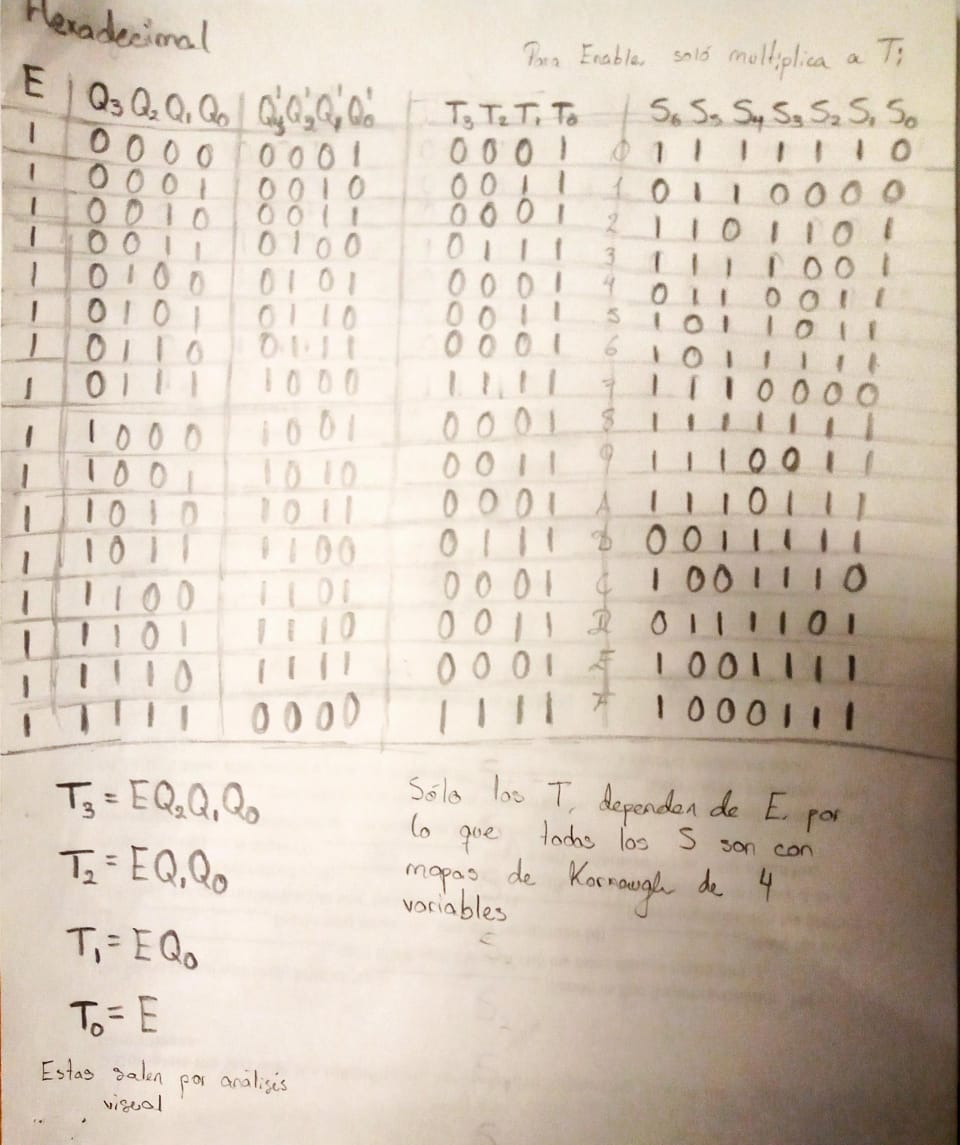 Hexadecimal
Para Enable solo multiplica a Ti
E | Q3 Q2 Q1 Q0 | Q'3 Q'2 Q'1 Q'0 | T3 T2 T1 T0 | S6 S5 S4 S3 S2 S1 S0
1 0 0 0 0 0 0 0 1 0 0 0 1 0 1 1 1 1 1 1 0
1 0 0 0 1 0 0 1 0 0 0 1 1 1 0 1 1 0 0 0 0
1 0 0 1 0 0 0 1 1 0 0 0 1 2 1 1 0 1 1 0 1
1 0 0 1 1 0 1 0 0 0 1 1 1 3 1 1 1 1 0 0 1
1 0 1 0 0 0 1 0 1 0 0 0 1 4 0 1 1 0 0 1 1
1 0 1 0 1 0 1 1 0 0 0 1 1 5 1 0 1 1 0 1 1
1 0 1 1 0 0 1 1 1 0 0 0 1 6 1 0 1 1 1 1 1
1 0 1 1 1 1 0 0 0 1 1 1 1 7 1 1 1 0 0 0 0
1 1 0 0 0 1 0 0 1 0 0 0 1 8 1 1 1 1 1 1 1
1 1 0 0 1 1 0 1 0 0 0 1 1 9 1 1 1 0 0 1 1
1 1 0 1 0 1 0 1 1 0 0 0 1 A 1 1 1 0 1 1 1
1 1 0 1 1 1 1 0 0 0 1 1 1 B 0 0 1 1 1 1 1
1 1 1 0 0 1 1 0 1 0 0 0 1 C 1 0 0 1 1 1 0
1 1 1 0 1 1 1 1 0 0 0 1 1 D 0 1 1 1 1 0 1
1 1 1 1 0 1 1 1 1 0 0 0 1 E 1 0 0 1 1 1 1
1 1 1 1 1 0 0 0 0 1 1 1 1 F 1 0 0 0 1 1 1
T3 = E Q2 Q1 Q0
T2 = E Q1 Q0
T1 = E Q0
T0 = E
Estas salen por análisis
viseal
Sólo los T, dependen de E, por
lo que todos los S son con
mapas de Karnaugh de 4
variables